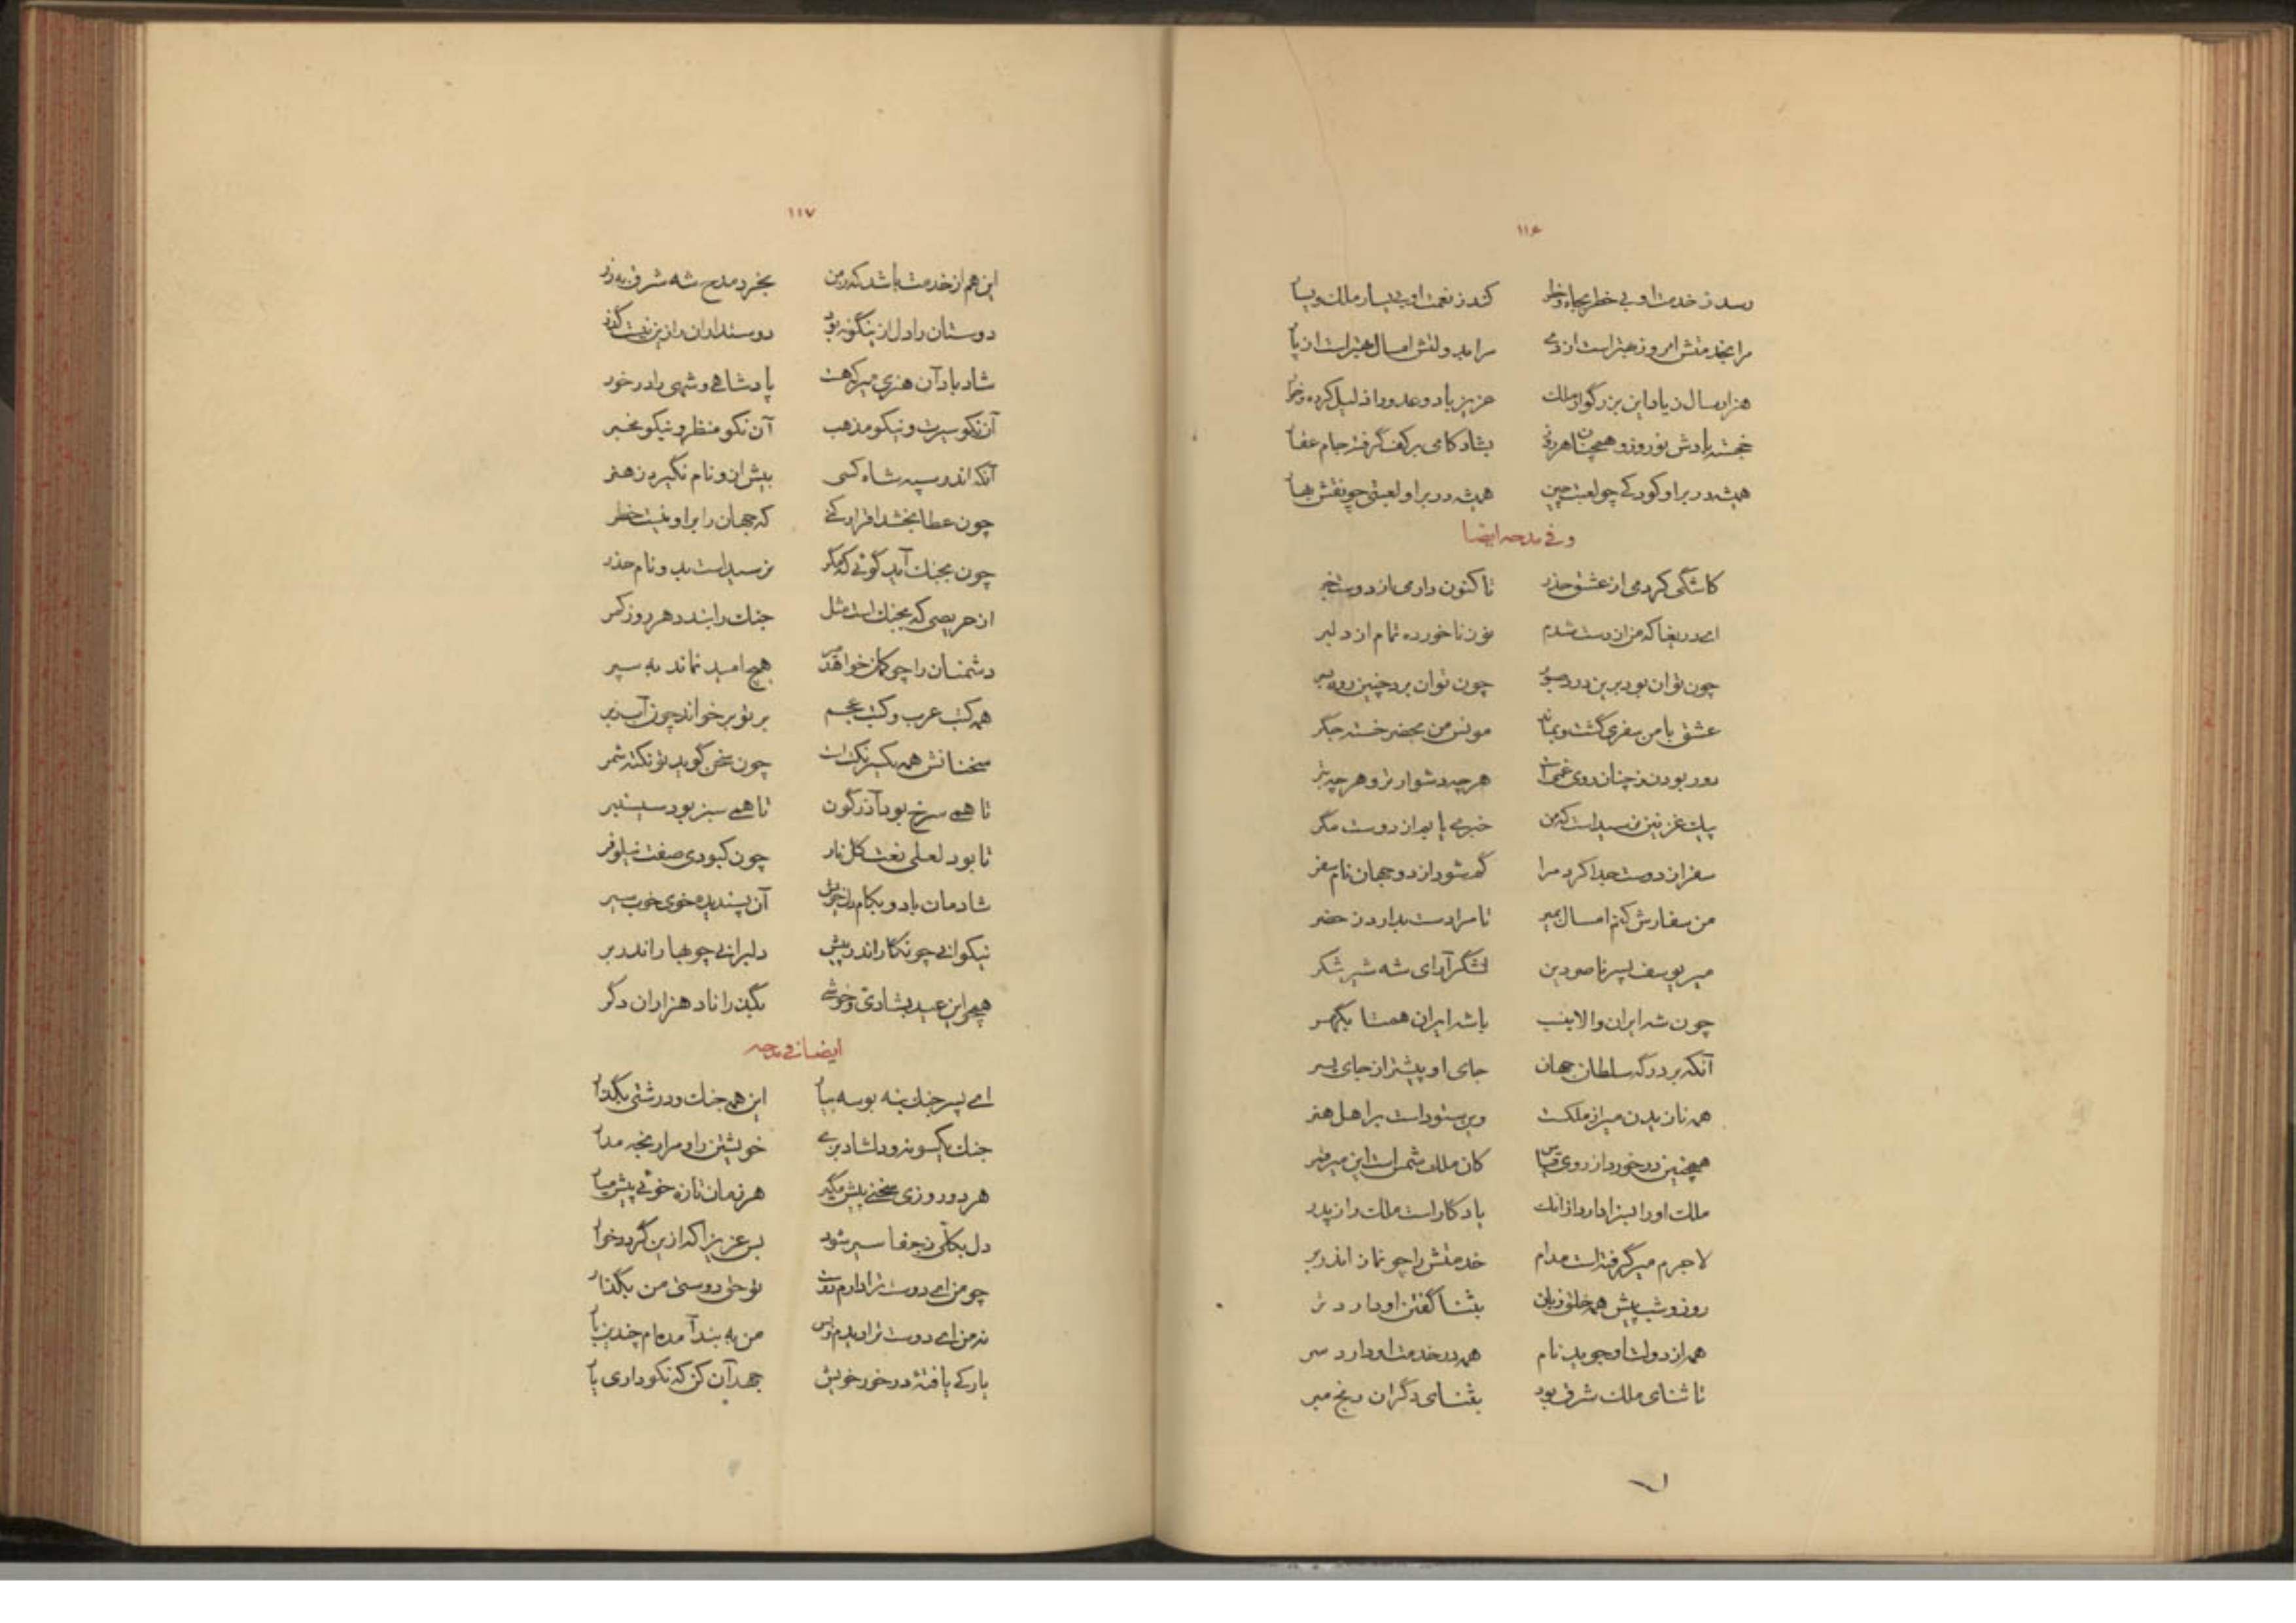 ۱۱۶
رسد ز خدمت او بی خطر بجاه و خطر کند ز نعمت او بی یسار ملک و یسار
مرا بخدمتش امروز بهتر است از دی مرا بدولتش امسال بهتر است از پار
هزار سال زیاد این بزرگوار ملک عزیز باد و عدو را ذلیل کرده و خوار
خجسته بادش نوروز و همچنان هر روز بشادکامی بر کف گرفته جام عقار
همیشه در بر او کودکی چو لعبت چین همیشه در بر او لعبتی چو نقش بهار
و فی مدحه ایضا
کاشکی کردمی از عشق حذر تا کنون دارمی از دوست خبر
ای دریغا که من از دست شدم نوز ناخورده تمام از دلبر
چون توان بود برین درد صبور چون توان برد چنین روز بسر
عشق با من سفری گشت و بماند مونس من بحضر خسته جگر
دور بودن ز چنان روی غمست هر چه دشوارتر و هر چه بتر
پیک غزنین نرسیدست که من خبری یابم از دوست مگر
سفر از دوست جدا کرد مرا گم شود از دو جهان نام سفر
من سفارش کنم امسال بمیر تا مرا دست بدارد ز حضر
میر یوسف پسر ناصر دین لشگر آرای شه شیر شکر
چون شه ایران والا بنسب با شه ایران همتا بگهر
آنکه بر درگه سلطان جهان جای او پیشتر از جای پسر
همه نازیدن میر از ملکست وین ستودست بر اهل هنر
همچنین در خورد از روی قیاس کان ملک شمس است این میر قمر
ملک او را بسزا دارد از انک یادگار است ملک را ز پدر
لا جرم میر گرفته است مدام خدمتش را چو نماز اندر بر
روز و شب پیش همه خلق زبان بثنا گفتن او دارد تر
همه از دولت او جوید نام همه در خدمت او دارد سر
تا ثنای ملک شرق بود بثنای دگران رنج مبر
۱۱۷
این هم از خدمت باشد که ز من بخرد مدح شه شرق به زر
دوستان را دل ازینگونه بود دوستداران را زین نیست گذر
شاد باد آن هنری میر که هست پادشاهی و شهی را در خور
آن نکو سیرت و نیکو مذهب آن نکو منظر و نیکو مخبر
آنکه اندر سپه شاه کسی بیش ازو نام نگیرد ز هنر
چون عطا بخشد اقرار کنی که جهان را بر او نیست خطر
چون بجنگ آید گوئی که مگر نرسیدست بدو نام حذر
از حریصی که بجنگ است مثل جنگ را بندد هر روز کمر
دشمنان را چو کمان خواهد میر هیچ امید نماند به سپر
همه کتب عرب و کتب عجم بر تو بر خواند چون آب ز بر
سخنانش همه یکسر نکت است چون سخن گوید تو نکته شمر
تا همی سرخ بود آذرگون تا همی سبز بود سیسنبر
تا بود لعلی نعت گل نار چون کبودی صفت نیلوفر
شادمان باد و بکام دل خویش آن پسندیده خوی خوب سیر
نیکوانی چو نگار اندر پیش دلبرانی چو بهار اندر بر
همچو این عید بشادی و خوشی بگذراناد هزاران دگر
ایضا فی مدحه
ای پسر جنگ بنه بوسه بیار این همه جنگ و درشتی بگذار
جنگ یکسو نه و دلشاد بزی خویشتن را و مرا رنجه مدار
هر دو روزی سخنی پیش مگیر هر زمان تازه خوئی پیش میار
دل بکانی ز جفا سیر شود بس عزیزا که ازین گردد خوار
چو من ای دوست ترا دارم دوست تو حق دوستی من بگذار
نه من ای دوست ترا دیدم و بس من به بند آمده ام چندین بار
یارکی یافتهٔ در خور خویش جهد آن کن که نکو داری یار